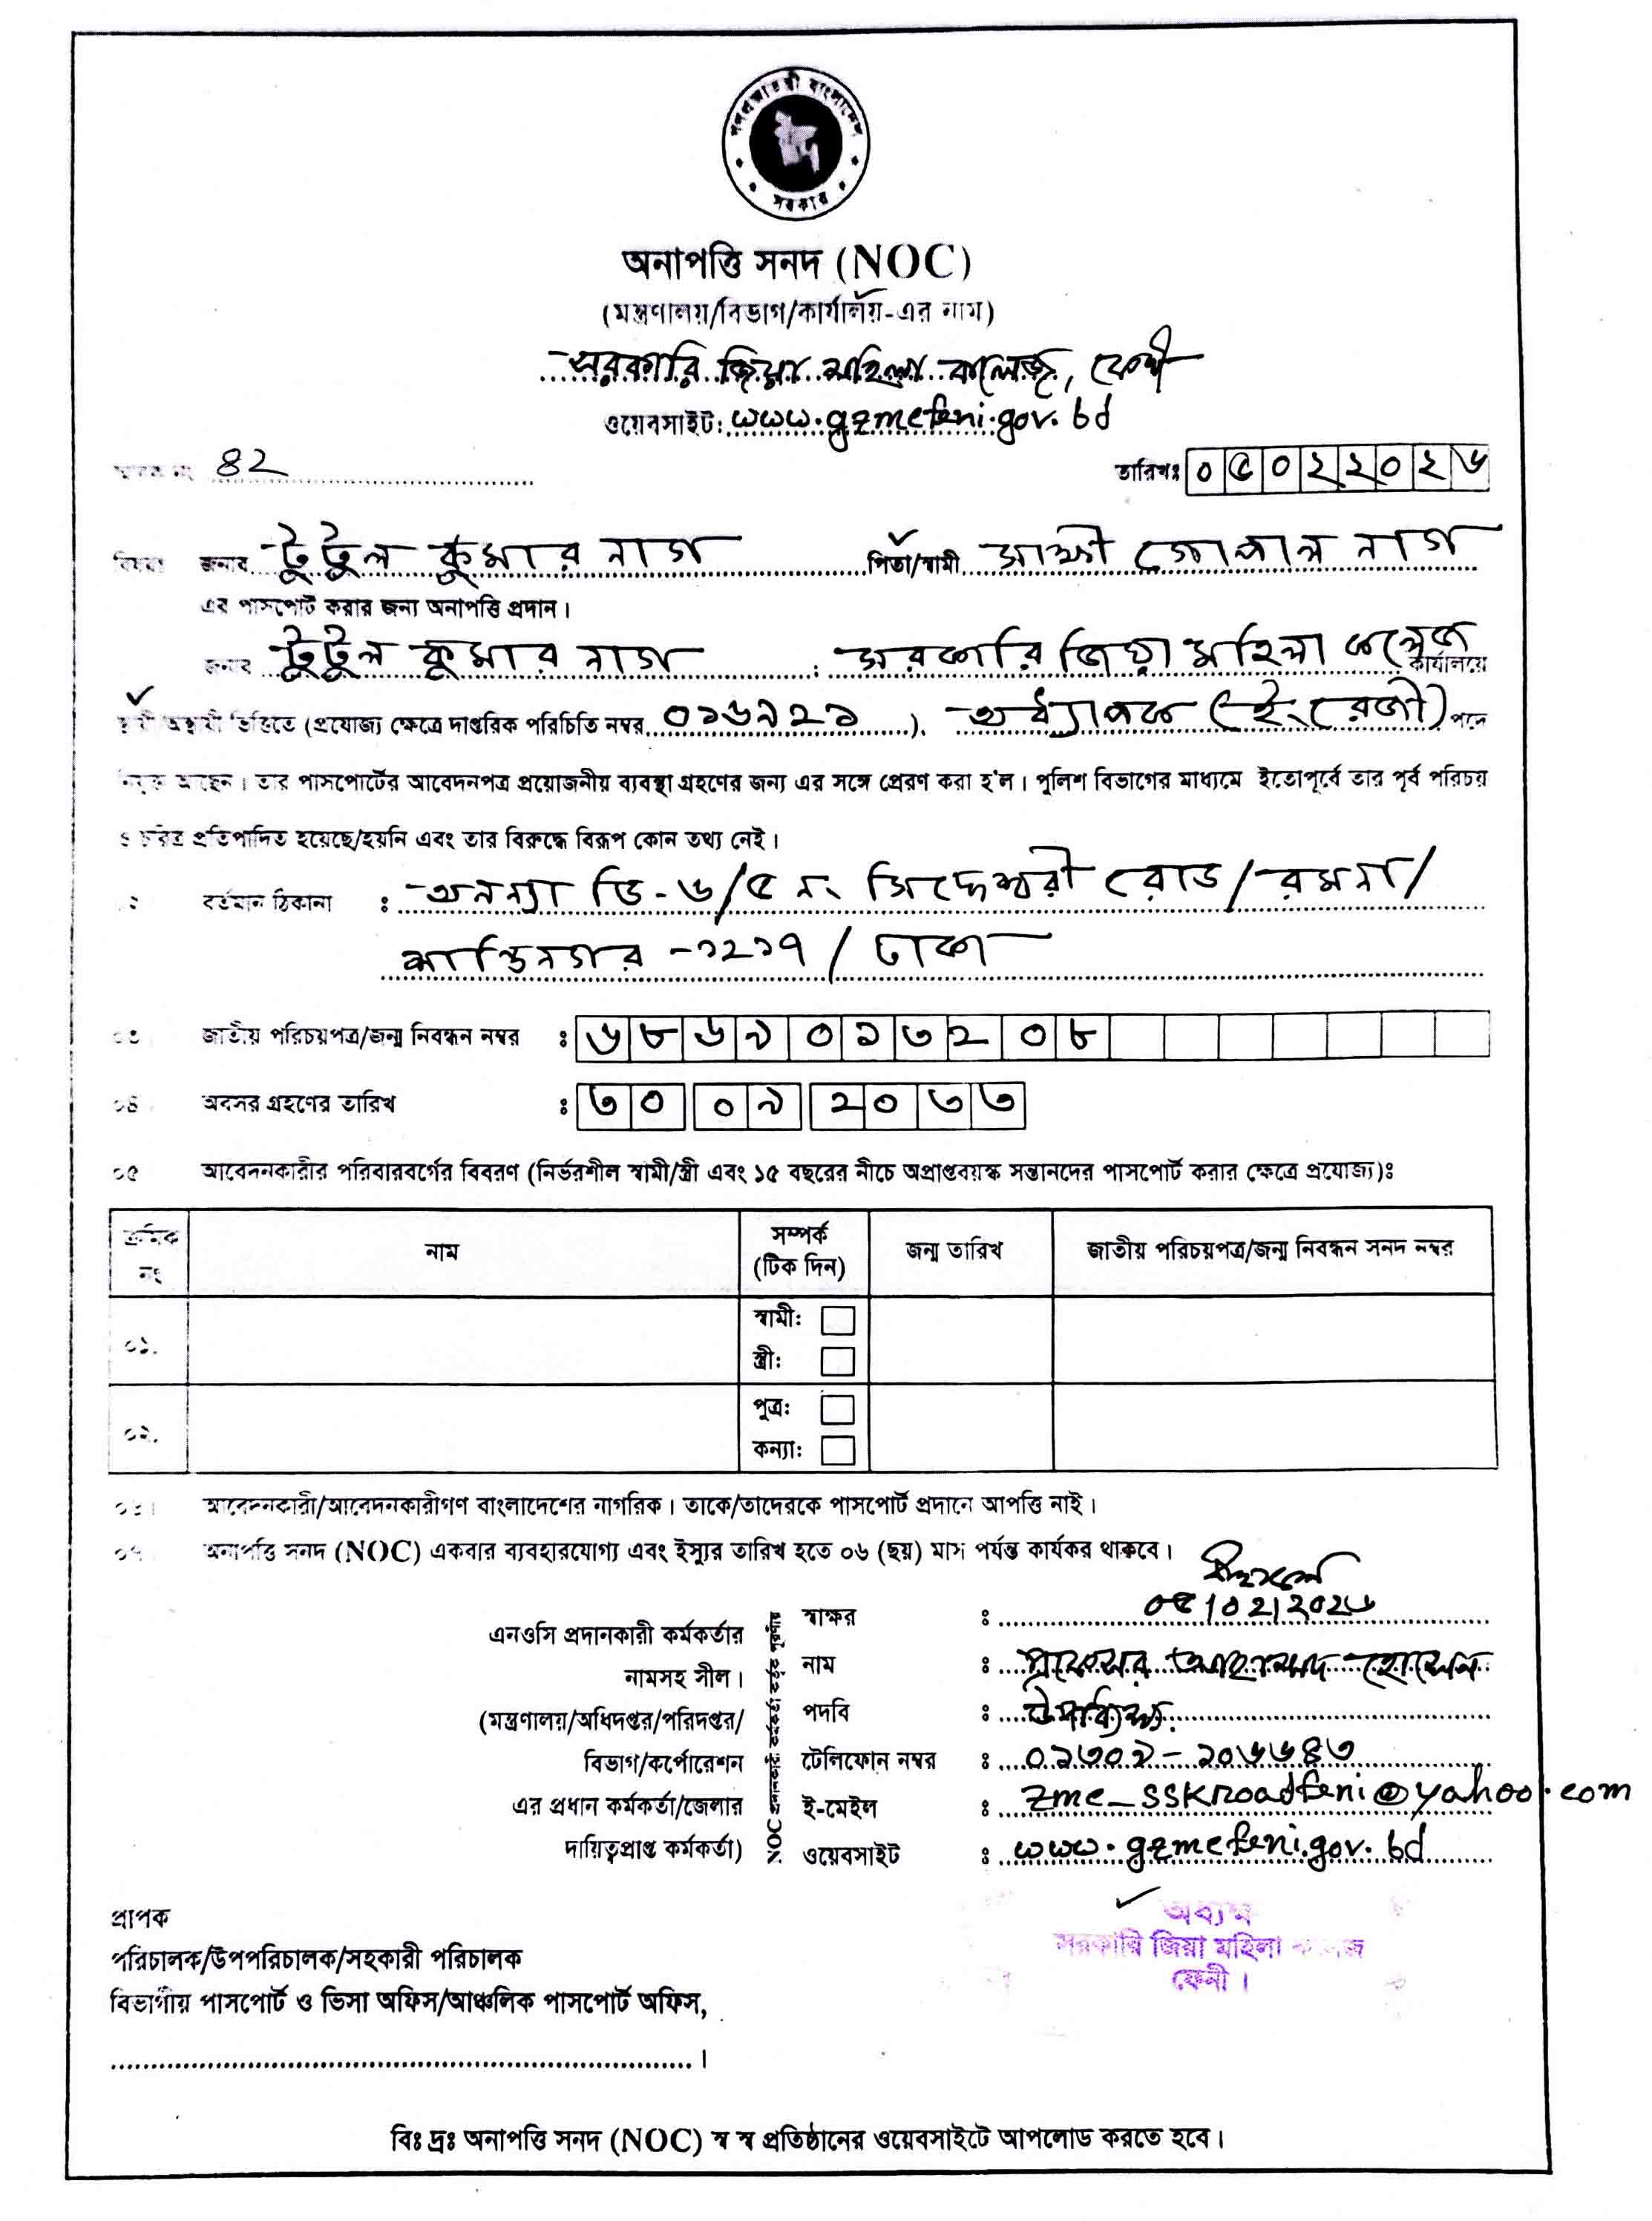 গণপ্রজাতন্ত্রী বাংলাদেশ
সরকার
অনাপত্তি সনদ (NOC)
(মন্ত্রণালয়/বিভাগ/কার্যালয়-এর নাম)
সরকারি জিয়া মহিলা কলেজ, ফেনী
ওয়েবসাইট: www.gzmcfeni.gov.bd
স্মারক নং 82
তারিখঃ ০৫০২২০২৬
বিষয়ঃ জনাব টুটুল কুমার নাগ পিতা/স্বামী সাক্ষী গোপাল নাগ
এর পাসপোর্ট করার জন্য অনাপত্তি প্রদান।
জনাব টুটুল কুমার নাগ : সরকারি জিয়া মহিলা কলেজ কার্যালয়ে
স্থায়ী/অস্থায়ী ভিত্তিতে (প্রযোজ্য ক্ষেত্রে দাপ্তরিক পরিচিতি নম্বর ০১৬৯২১), অধ্যাপক (ইংরেজী) পদে
নিযুক্ত আছেন। তার পাসপোর্টের আবেদনপত্র প্রয়োজনীয় ব্যবস্থা গ্রহণের জন্য এর সঙ্গে প্রেরণ করা হ'ল। পুলিশ বিভাগের মাধ্যমে ইতোপূর্বে তার পূর্ব পরিচয়
ও চরিত্র প্রতিপাদিত হয়েছে/হয়নি এবং তার বিরুদ্ধে বিরূপ কোন তথ্য নেই।
০২ বর্তমান ঠিকানা : অনন্যা ডি-৬/৫ নং সিদ্ধেশ্বরী রোড/রমনা/
শান্তিনগর -১২১৭/ ঢাকা
০৩ জাতীয় পরিচয়পত্র/জন্ম নিবন্ধন নম্বর ঃ ৬৮৬৯০১৩২০৮
০৪ অবসর গ্রহণের তারিখ ঃ ৩০ ০৯ ২০৩৩
০৫ আবেদনকারীর পরিবারবর্গের বিবরণ (নির্ভরশীল স্বামী/স্ত্রী এবং ১৫ বছরের নীচে অপ্রাপ্তবয়স্ক সন্তানদের পাসপোর্ট করার ক্ষেত্রে প্রযোজ্য)ঃ
ক্রমিক নং নাম সম্পর্ক (টিক দিন) জন্ম তারিখ জাতীয় পরিচয়পত্র/জন্ম নিবন্ধন সনদ নম্বর
০১. স্বামী:
স্ত্রী:
০২. পুত্র:
কন্যা:
০৬। আবেদনকারী/আবেদনকারীগণ বাংলাদেশের নাগরিক। তাকে/তাদেরকে পাসপোর্ট প্রদানে আপত্তি নাই।
০৭ অনাপত্তি সনদ (NOC) একবার ব্যবহারযোগ্য এবং ইস্যুর তারিখ হতে ০৬ (ছয়) মাস পর্যন্ত কার্যকর থাকবে।
এনওসি প্রদানকারী কর্মকর্তার
নামসহ সীল।
(মন্ত্রণালয়/অধিদপ্তর/পরিদপ্তর/
বিভাগ/কর্পোরেশন
এর প্রধান কর্মকর্তা/জেলার
দায়িত্বপ্রাপ্ত কর্মকর্তা)
NOC প্রদানকারী কর্মকর্তা কর্তৃক পূরণীয়
স্বাক্ষর ঃ ০৫/০২/২০২৬
নাম ঃ প্রফেসর মোহাম্মদ হোসেন
পদবি ঃ উপাধ্যক্ষ
টেলিফোন নম্বর ঃ ০১৩০৯-১০৬৬৪৩
ই-মেইল ঃ zmc_sskroadfeni@yahoo.com
ওয়েবসাইট ঃ www.gzmcfeni.gov.bd
অধ্যক্ষ
সরকারি জিয়া মহিলা কলেজ
ফেনী।
প্রাপক
পরিচালক/উপপরিচালক/সহকারী পরিচালক
বিভাগীয় পাসপোর্ট ও ভিসা অফিস/আঞ্চলিক পাসপোর্ট অফিস,
।
বিঃ দ্রঃ অনাপত্তি সনদ (NOC) স্ব স্ব প্রতিষ্ঠানের ওয়েবসাইটে আপলোড করতে হবে।